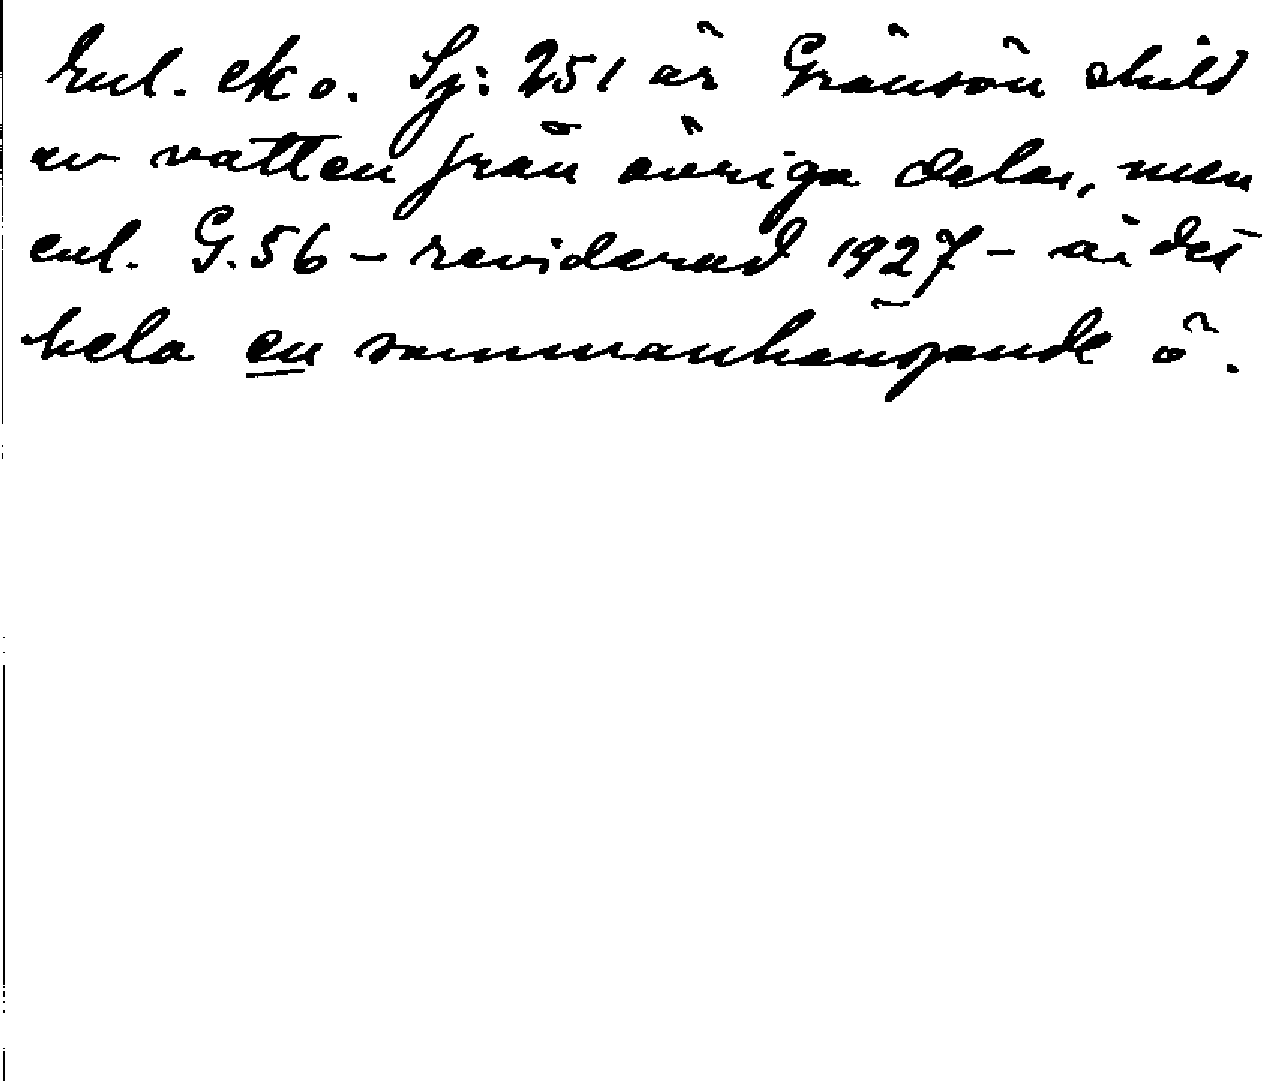 Enl. eko. Sj: 251 är Gränsön skild
av vatten från övriga delar, men
enl. G.56 – reviderad 1927 – är det
hela en sammanhängande ö.